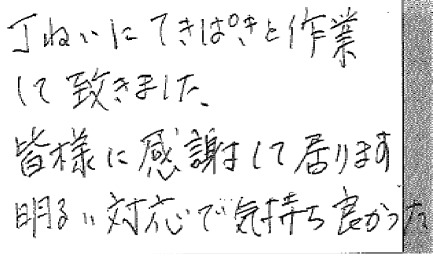 丁ねいにてきぱきと作業
して致きました、
皆様に感謝して居ります
明るい対応で気持ち良かった